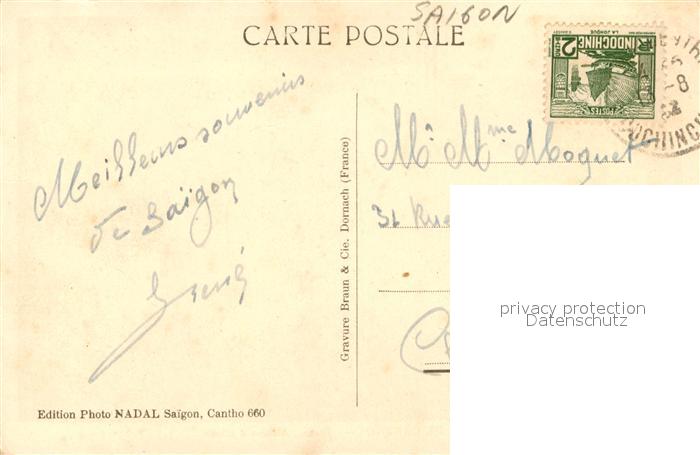 SAIGON
CARTE POSTALE
Meilleurs souvenirs
de Saïgon
René
Edition Photo NADAL Saïgon, Cantho 660
Gravure Braun & Cie. Dornach (France)
2
INDOCHINE
RF
LA JONQUE
POSTES
-8
Mr Mme Moguet
31 Rue
privacy protection
Datenschutz